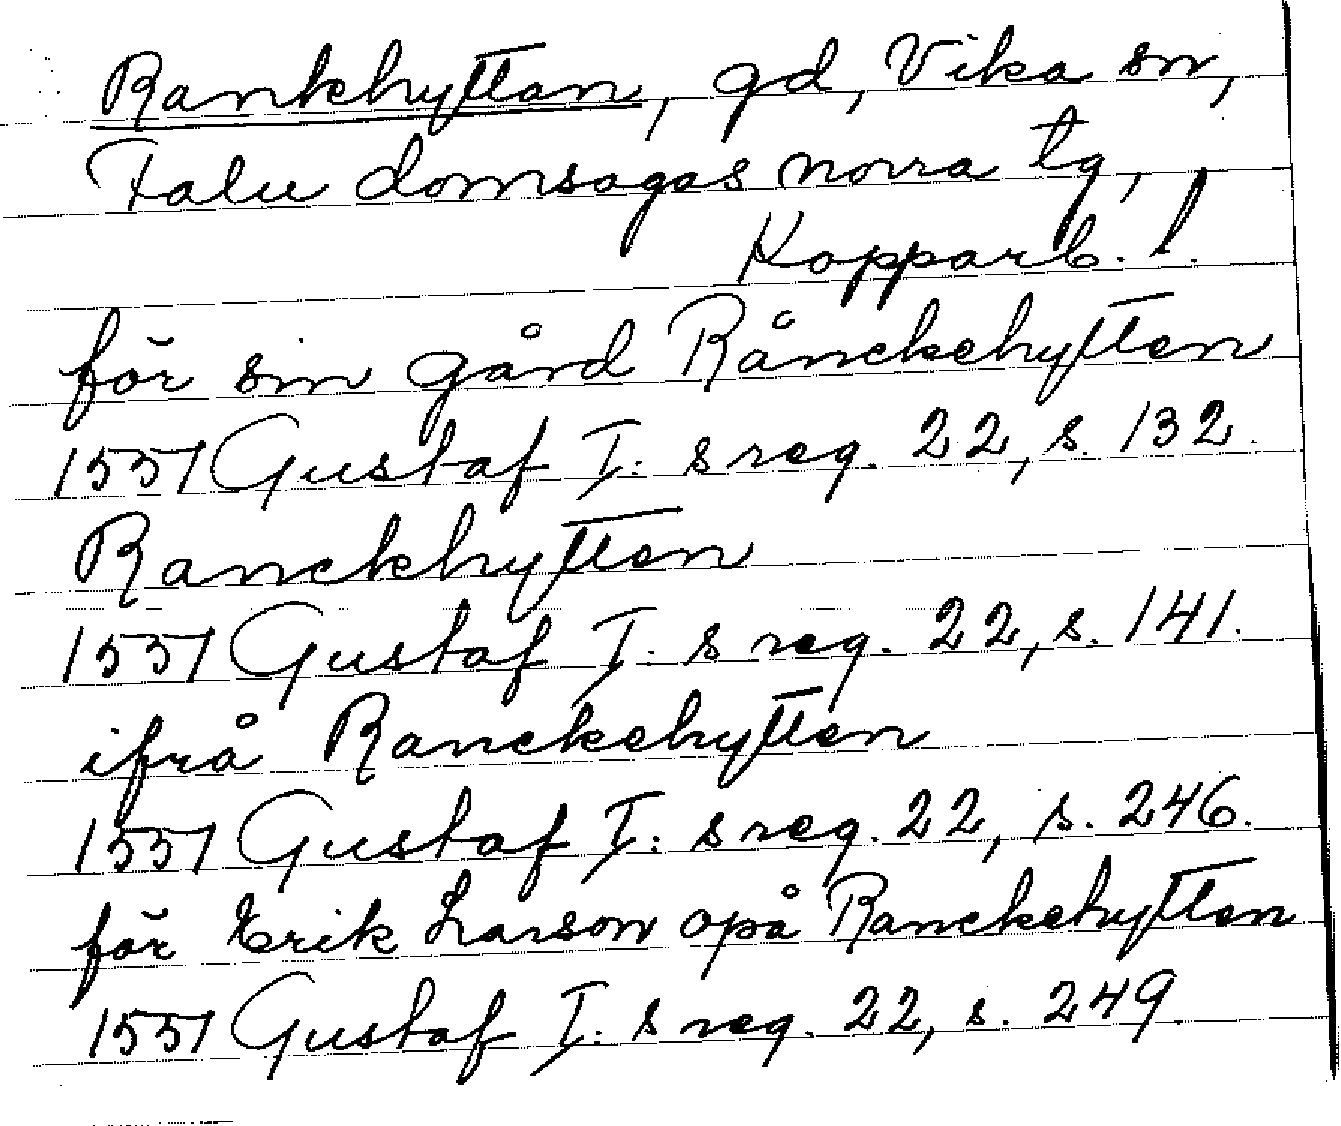 Rankhyttan, gd, Vika sn,
Falu domsagas norra tg,
Kopparb. l.
för sin gård Rånckehytten
1551 Gustaf I: s reg. 22, s. 132.
Ranckhytten
1551 Gustaf I: s reg. 22, s. 141.
ifrå Ranckehytten
1551 Gustaf I: s reg. 22, s. 246.
för Erik Larson opå Ranckehytten
1551 Gustaf I: s reg. 22, s. 249.